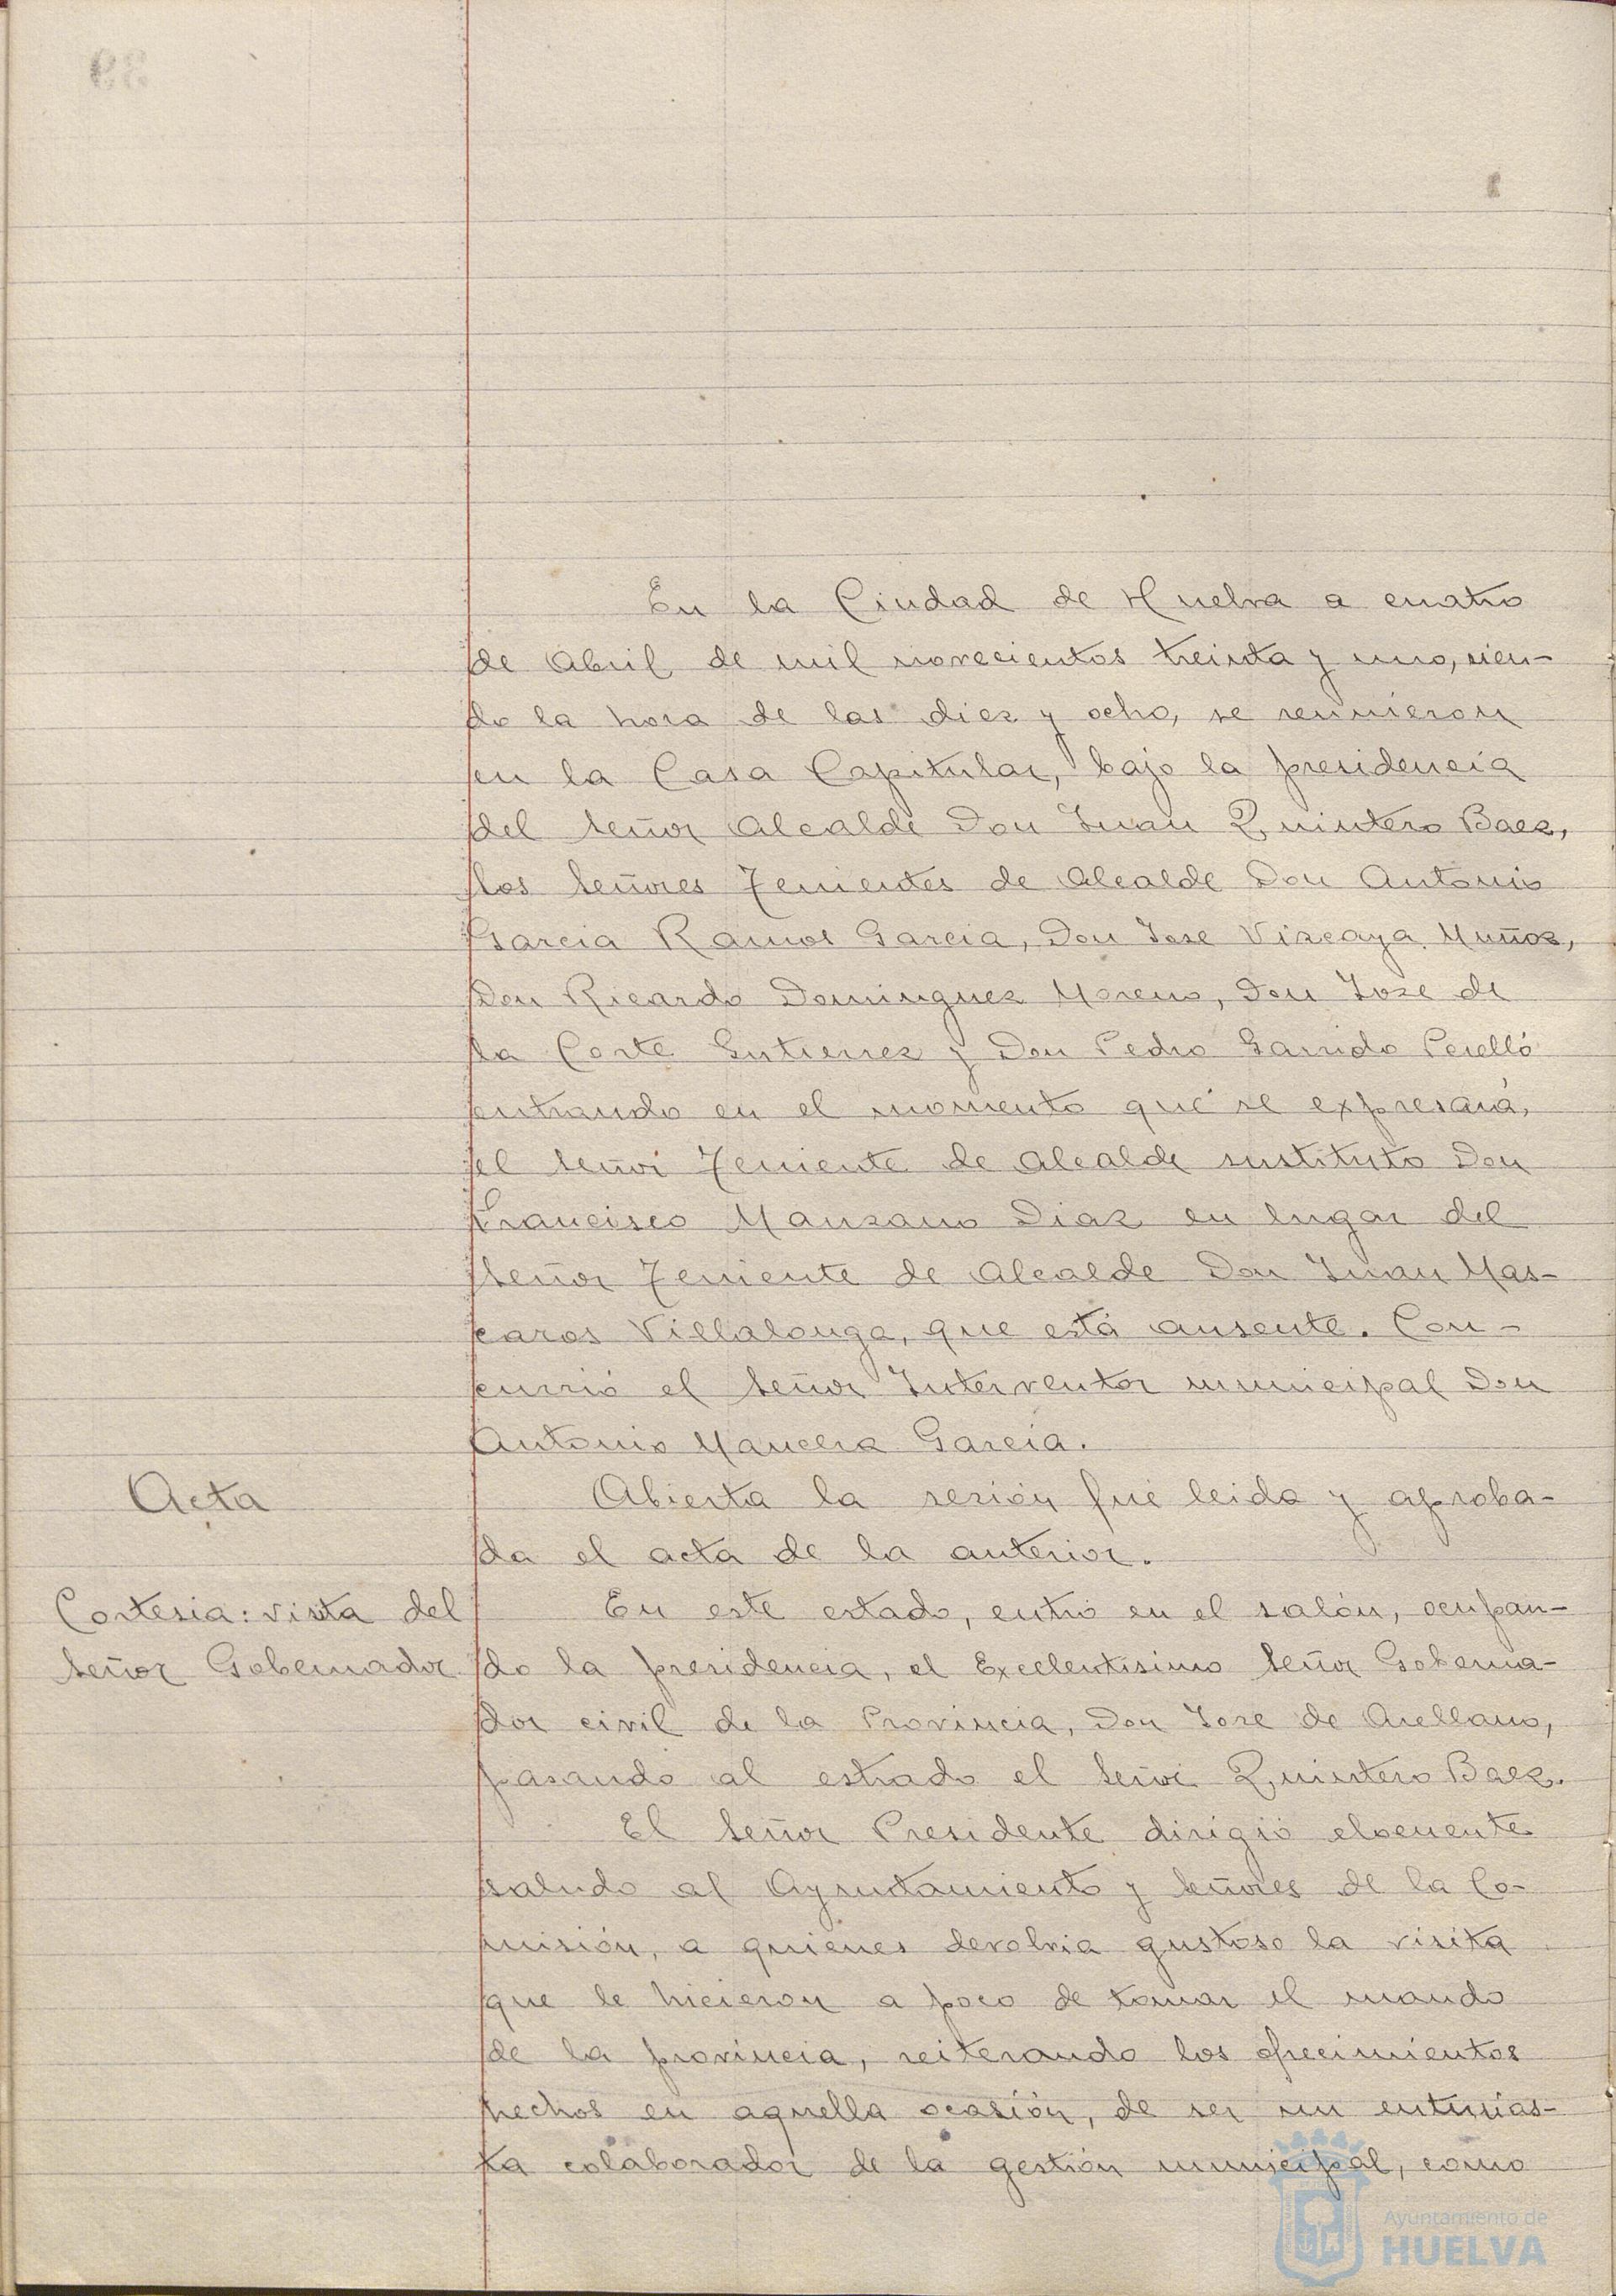 En la Ciudad de Huelva a cuatro
de Abril de mil novecientos treinta y uno, sien-
do la hora de las diez y ocho, se reunieron
en la Casa Capitular, bajo la presidencia
del Señor Alcalde Don Juan Quintero Baez,
los Señores Tenientes de Alcalde Don Antonio
Garcia Ramos Garcia, Don Jose Vizcaya Muñoz,
Don Ricardo Dominguez Moreno, Don Jose de
la Corte Gutierrez y Don Pedro Garrido Perelló
entrando en el momento que se expresará,
el Señor Teniente de Alcalde sustituto Don
Francisco Manzano Diaz en lugar del
Señor Teniente de Alcalde Don Juan Mas-
caros Villalonga, que está ausente. Con-
currió el Señor Interventor municipal Don
Antonio Mancera Garcia.
Acta
Abierta la sesión fué leida y aproba-
da el acta de la anterior.
Cortesia: visita del
Señor Gobernador
En este estado, entró en el salón, ocupan-
do la presidencia, el Excelentisimo Señor Goberna-
dor civil de la Provincia, Don Jose de Arellano,
pasando al estrado el Señor Quintero Baez.
El Señor Presidente dirigió elocuente
saludo al Ayuntamiento y Señores de la Co-
misión, a quienes devolvia gustoso la visita
que le hicieron a poco de tomar el mando
de la provincia, reiterando los ofrecimientos
hechos en aquella ocasión, de ser un entusias-
ta colaborador de la gestión municipal, como
Ayuntamiento de
HUELVA